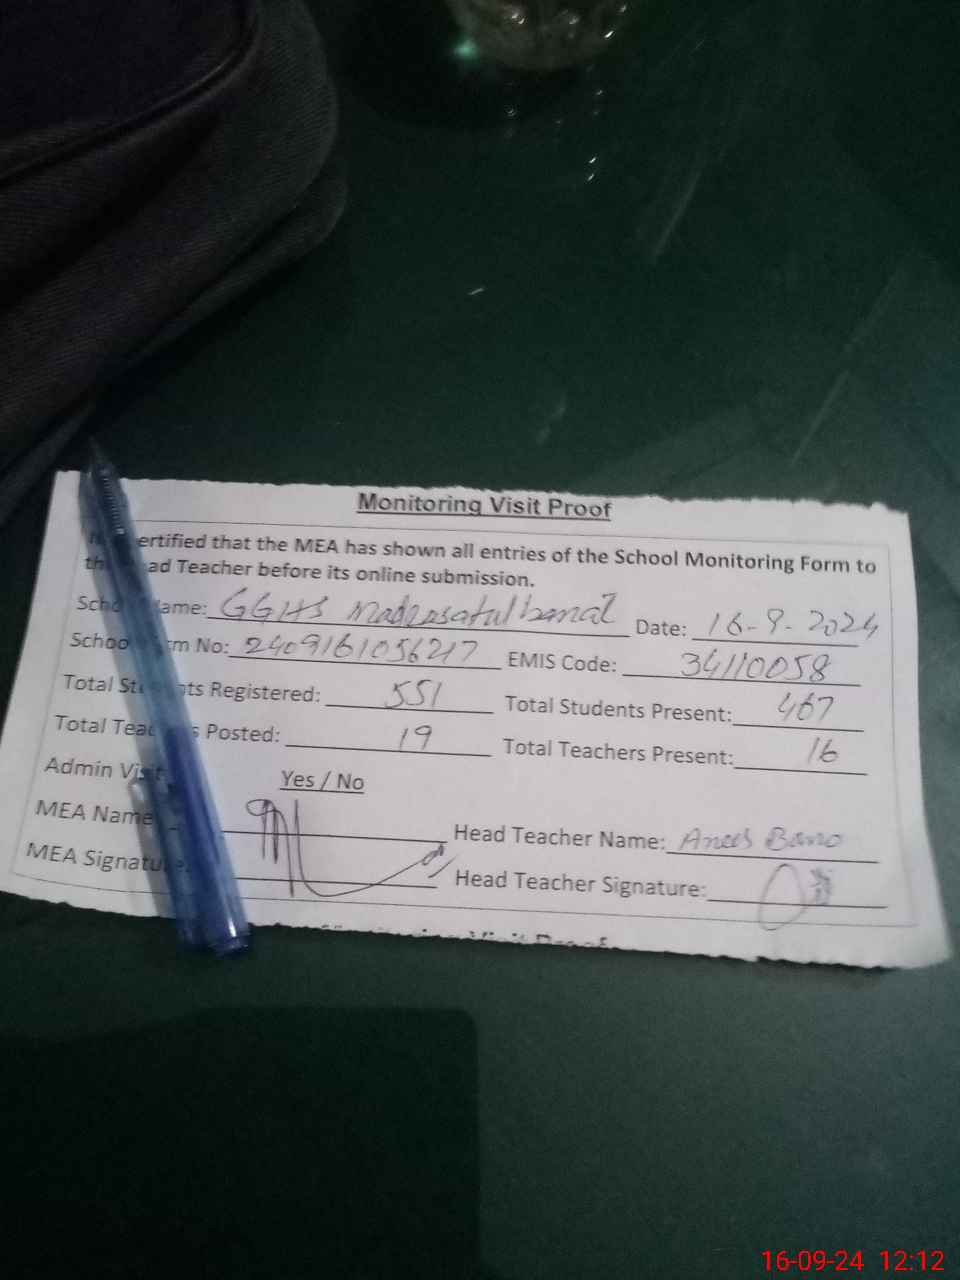 Monitoring Visit Proof
ertified that the MEA has shown all entries of the School Monitoring Form to
th ad Teacher before its online submission.
Scho ame: GGHS Madrasatulbanat Date: 16-9-2024
Schoo rm No: 2409161056217 EMIS Code: 34110058
Total St ts Registered: 551 Total Students Present: 467
Total Teac s Posted: 19 Total Teachers Present: 16
Admin Visit Yes / No
MEA Name Head Teacher Name: Anees Bano
MEA Signatu Head Teacher Signature:
16-09-24 12:12